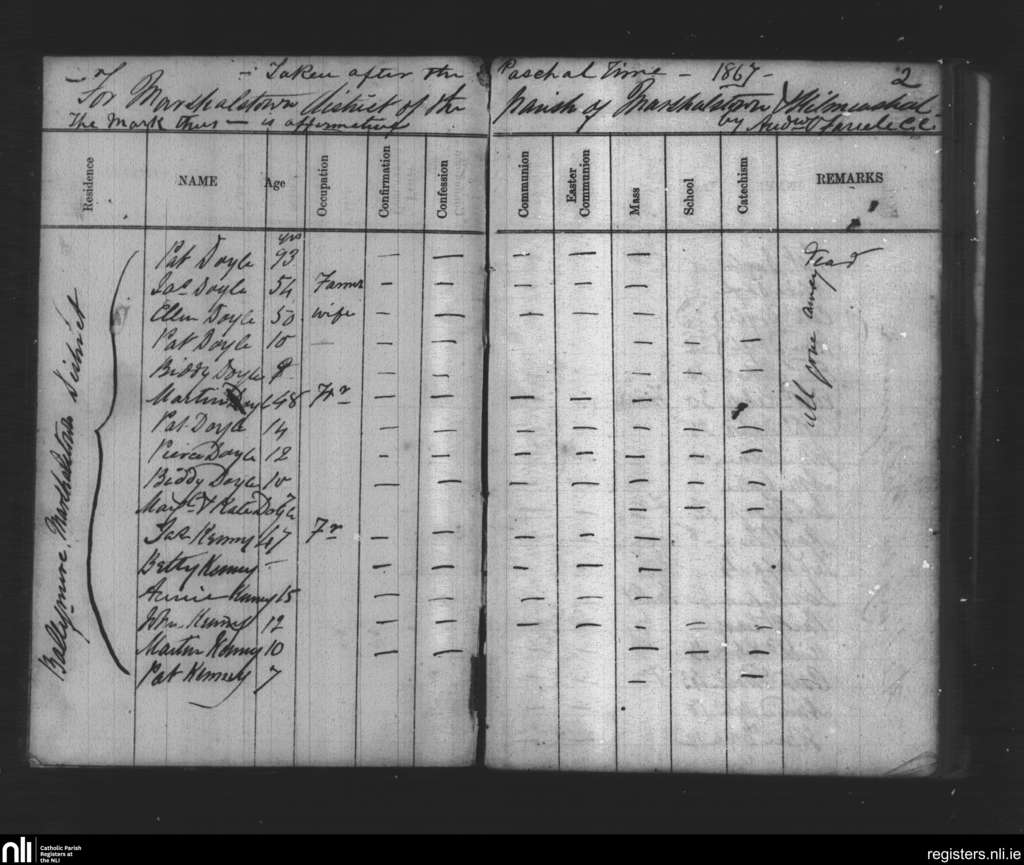 – Taken after the Paschal Time – 1867 – 2
For Marshalstown district of the parish of Marshalstown &
The Mark thus — is affirmative by Andw
Residence NAME Age Occupation Confirmation Confession Communion Easter Communion Mass School Catechism REMARKS
yrs
Ballymore Marshalstown District
Pat Doyle 93 — — — — — dead
Jas Doyle 54 Farmer — — — — —
Ellen Doyle 50 wife — — — — —
Pat Doyle 10 — — — — — —
Biddy Doyle 8 — — — — —
all gone away
Martin Doyle 48 Fr — — — — —
Pat Doyle 14 — — — — — — —
Pierce Doyle 12 — — — — — — —
Biddy Doyle 10 — — — — — — —
& Kate Doyle 7 — — —
Jas Kenny 47 Fr — — — — —
Betty Kenny – — — — — —
Annie Kenny 15 — — — — — — —
John Kenny 12 — — — — — — —
Martin Kenny 10 — — — — —
Pat Kenny 7 — —
nli Catholic Parish
Registers at
the NLI
registers.nli.ie